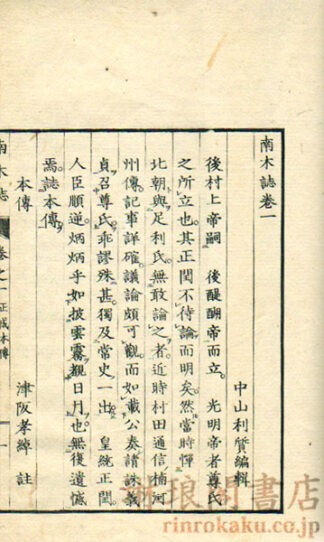 南木誌卷一
中山利質編輯
後村上帝嗣 後醍醐帝而立 光明帝者尊氏
之所立也其正閏不待論而明矣然當時憚
北朝與足利氏無敢論之者近時村田通信楠河
州傳記事詳確議論頗可觀而如載公奏請誅義
貞召尊氏乖謬殊甚獨及當史一出 皇統正閏
人臣順逆炳炳乎如披雲霧覩日月也無復遺憾
焉誌本傳
本傳
津阪孝綽 註
南木誌
卷之一
正成本傳
一
琳琅閣書店
rinrokaku.co.jp